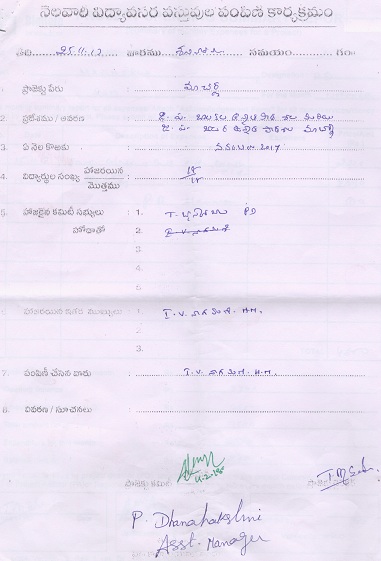 నెలవారి విద్యావసర వస్తువుల పంపిణి కార్యక్రమం
తేది 25.11.17 వారము శనివారం సమయం గం॥
1. ప్రాజెక్టు పేరు : మాచర్ల
2. ప్రదేశము / ఆవరణ : జి. ప. బాలికల ఉన్నత పాఠశాల మరియు
జి. ప. బాలుర ఉన్నత పాఠశాల మాచర్ల
3. ఏ నెల కొరకు : నవంబర్ 2017
4. విద్యార్థుల సంఖ్య హాజరయిన / మొత్తము : 18/18
5. హాజరైన కమిటి సభ్యులు : 1. T. PD
హోదాతో 2.
3.
4.
5.
6. హాజరయిన ఇతర ముఖ్యులు : 1. I. V. H.M.
2.
3.
7. పంపిణీ చేసిన వారు : I. V. H.M.
8. వివరణ / సూచనలు :
ప్రాజెక్టు కమిటి
P. Dhanalakshmi
Asst. Manager